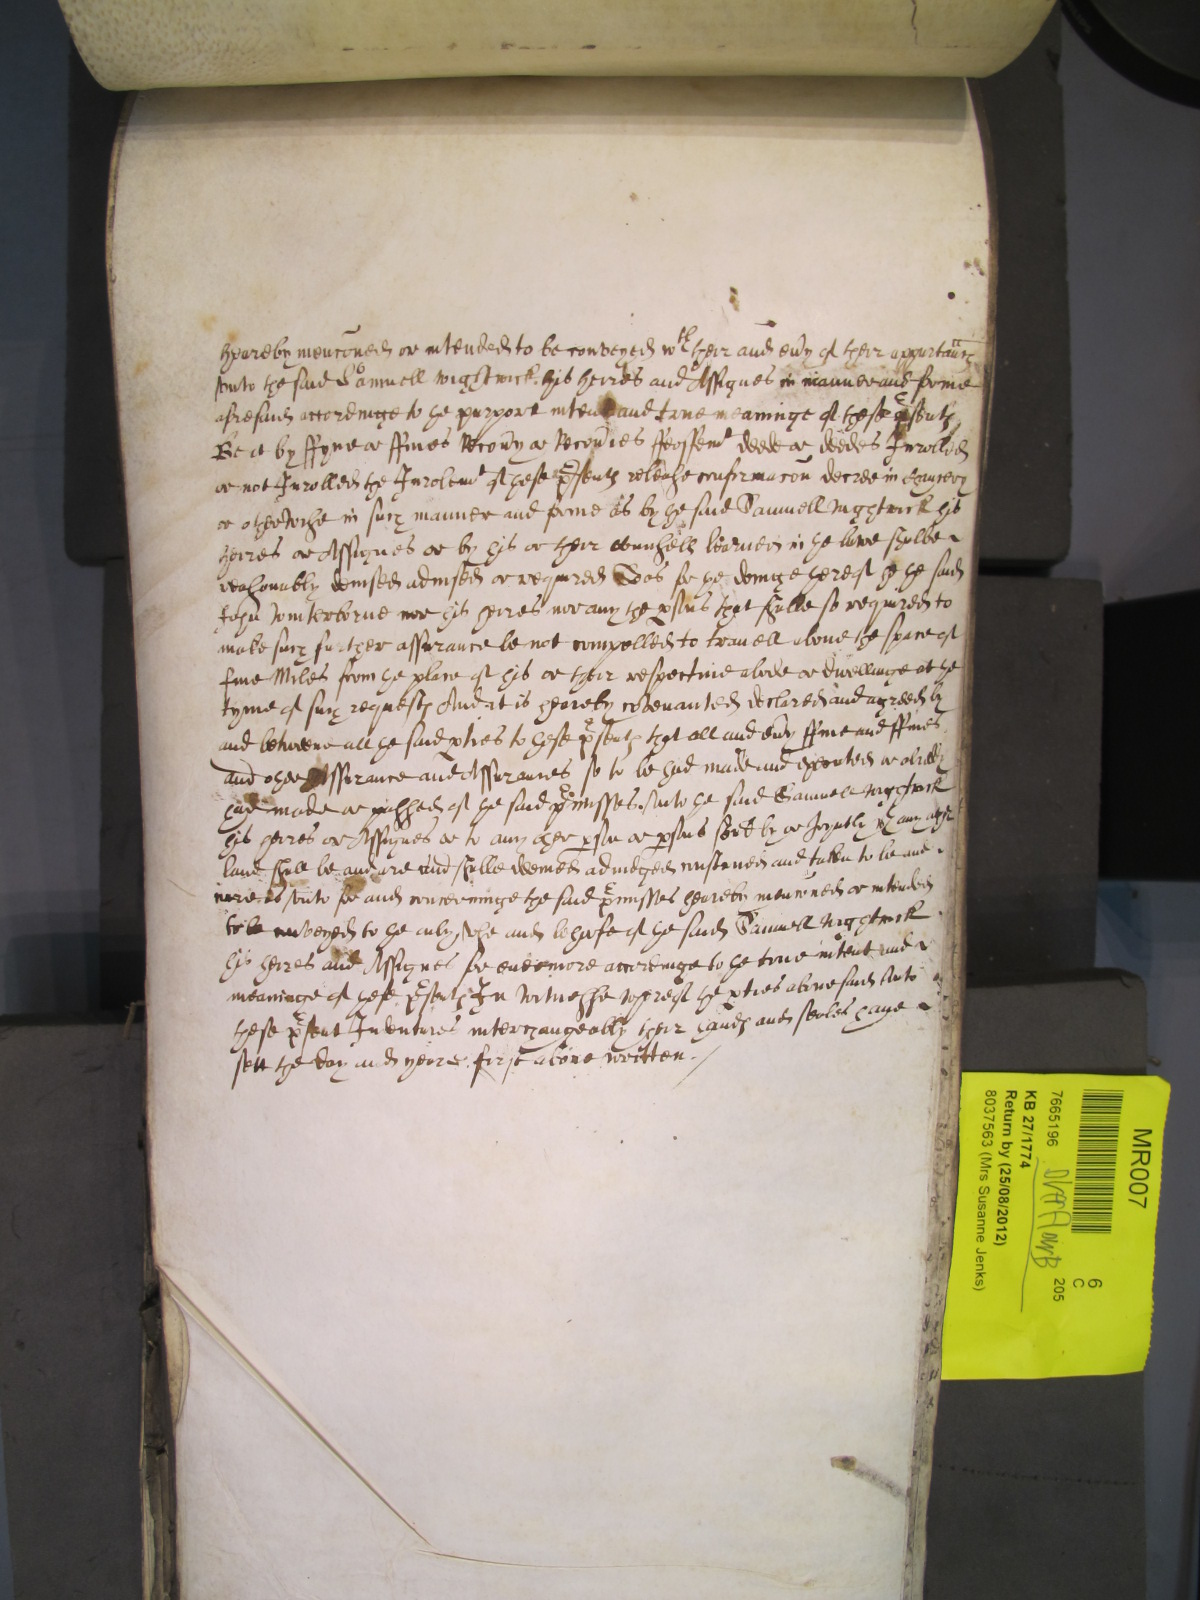 hereby mencõned or intended to be conveyed wth their and eũy of their appurtañcs
unto the said Samuell Wightwick his heires and Assignes in manner and forme
aforesaid accordinge to the purport intent and true meaninge of these p̃sents
Be it by ffyne or ffines Recoũy or Recoũies ffeoffemt deede or deedes Inrolled
or not Inrolled the Inrolemt of these p̃sents release confirmacõn decree in Chancery
or otherwise in such manner and forme as by the said Samuell Wightwick his
heires or Assignes or by his or their counsell learned in the lawe shalbe
reasonably devised advised or required Soe as for the doinge hereof the said
John Winterborne nor his heires nor any the psons that shalbe so required to
make such further assurance be not compelled to travell above the space of
five Miles from the place of his or their respective abode or dwellinge at the
tyme of such request And it is hereby covenanted declared and agreed by
and betweene all the said pties to these p̃sents that all and eũy ffine and ffines
and other Assurance and Assurances so to be had made and executed or already
had made or passed of the said p̃misses unto the said Samuell Wightwick
his heires or Assignes or to any other pson or psons by or Joyntly any other
land shall be and are and shalbe deemed adiudged construed and taken to be and
unto for and concerninge the said p̃misses hereby mencõned or intended
to be conveyed to the only use and behoofe of the said Samuell Wightwick
his heires and Assignes for evermore accordinge to the true intent and
meaninge of these p̃sents In Witnesse whereof the pties abovesaid unto
these p̃sent Indentures interchangeably their hands and seales have
sett the day and yeare first above written
MR007
6
C
7665196
205
KB 27/1774
Return by (25/08/2012)
8037563 (Mrs Susanne Jenks)